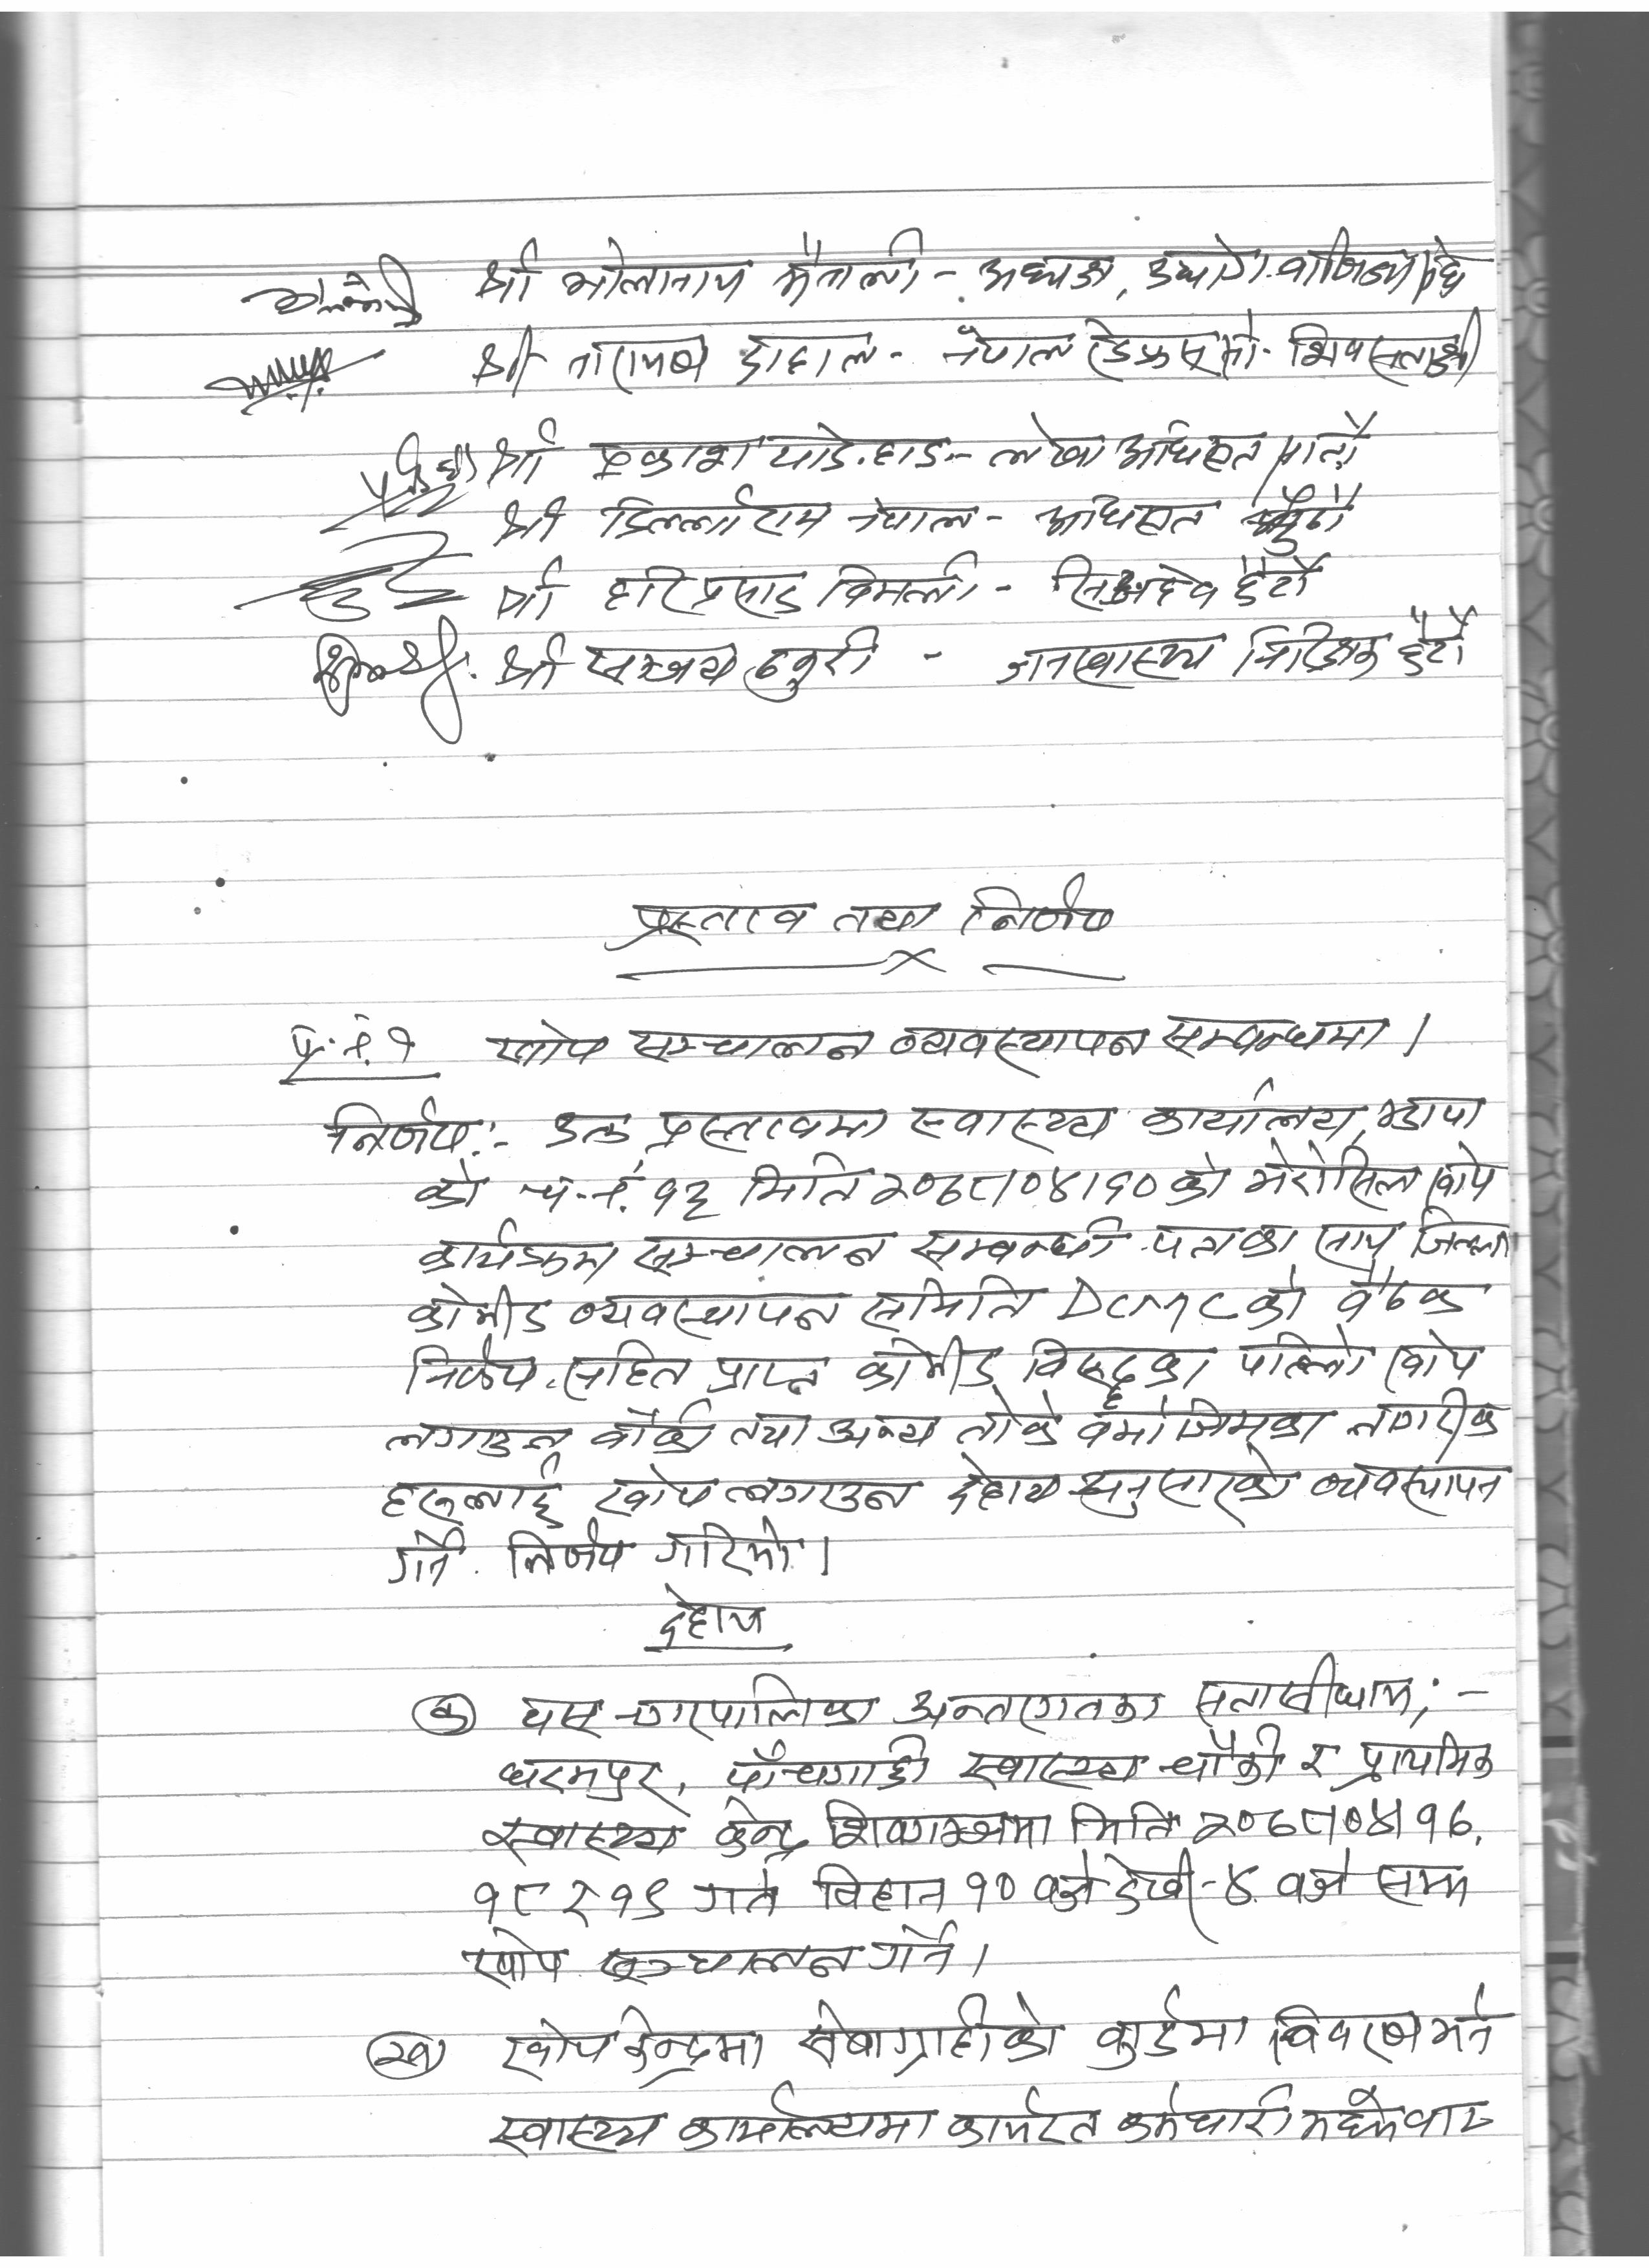 श्री भोलानाथ मैनाली - अध्यक्ष, उद्योग वाणिज्य संघ
श्री नारायण दाहाल - नेपाल रेडक्रस सो. शिवसताक्षी
श्री प्रकाश पाडे. हाड - लेखा अधिकृत
श्री डिल्लीराम नेपाल - अधिकृत छैटौं
श्री हरिप्रसाद विमली - सिअहेव छैटौं
श्री सञ्जय ठकुरी - जनस्वास्थ्य निरिक्षक छैटौं
प्रस्ताव तथा निर्णय
प्र.नं. १ खोप सञ्चालन व्यवस्थापन सम्बन्धमा ।
निर्णय :- उक्त प्रस्तावमा स्वास्थ्य कार्यालय, झापा
को च.नं. १३ मिति २०७८।०४।१० को भेरोसिल खोप
कार्यक्रम सञ्चालन सम्बन्धी पत्रका साथ जिल्ला
कोभीड व्यवस्थापन समिति DCMC को वैठक
निर्णय सहित प्राप्त कोभीड विरुद्धका पहिलो खोप
लगाउन बाँकी तथा अन्य तोके वमोजिमका नागरीक
हरुलाई खोप लगाउन देहाय अनुसारको व्यवस्थापन
गर्ने निर्णय गरियो ।
देहाय
(क) यस नगरपालिका अन्तरगतका सताक्षीधाम, -
धरमपुर, पाँचगाछी स्वास्थ्य चौकी र प्राथमिक
स्वास्थ्य केन्द्र शिवगञ्जमा मिति २०७८।०४।१७,
१८ र १९ गते विहान १० वजे देखी - ४ वजे सम्म
खोप सञ्चालन गर्ने ।
(ख) खोप केन्द्रमा सेवाग्राहीको कार्डमा विवरण भर्न
स्वास्थ्य कार्यालयमा कार्यरत कर्मचारी मध्येवाट